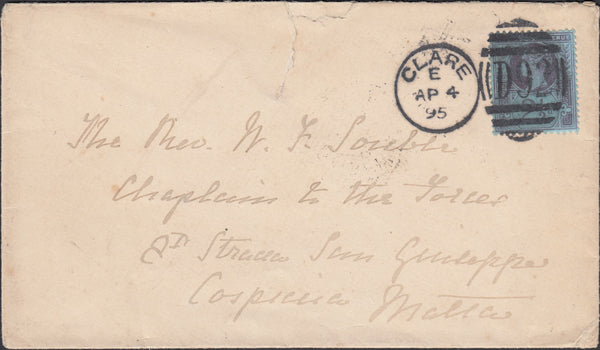 CLARE
E
AP 4
95
D92
The Rev. W. F.
Chaplain to the Forces
Strada San Giuseppe
Cospicua Malta